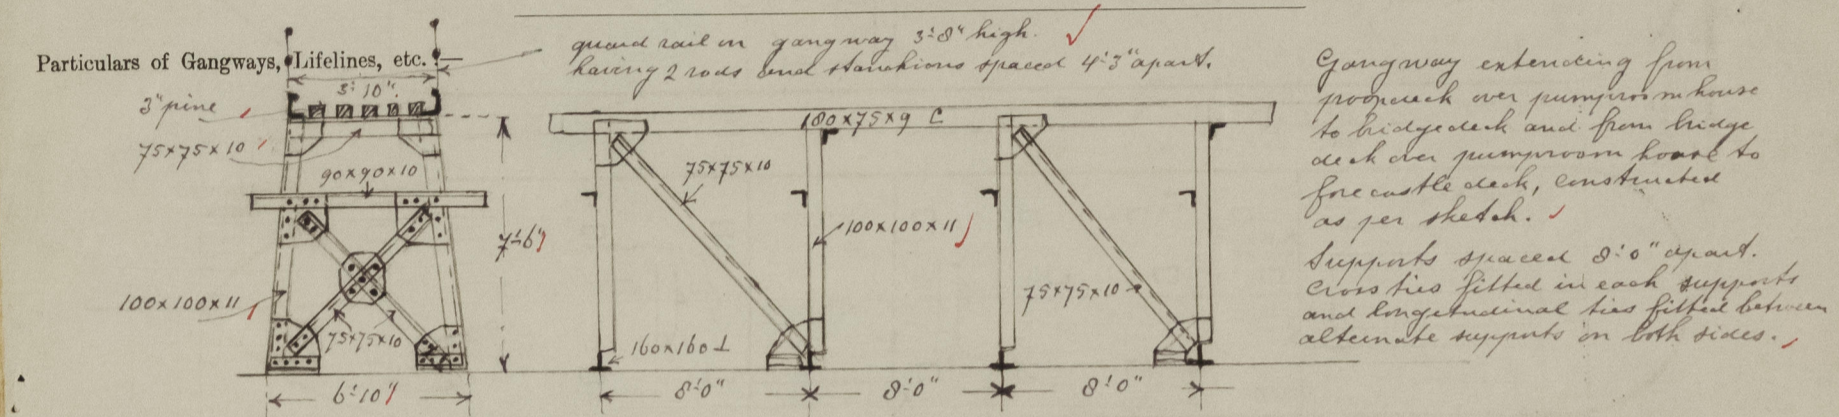 Particulars of Gangways, Lifelines, etc.
guard rail on gangway 3'-8" high.
having 2 rods and stanchions spaced 4'-3" apart.
3'-10"
3" pine
75x75x10
90x90x10
100x100x11
75x75x10
6'-10"
7'-6"
180x75x9 [
75x75x10
100x100x11
75x75x10
160x160 ⊥
8'-0"
8'-0"
8'-0"
Gangway extending from
poopdeck over pumproom house
to bridgedeck and from bridge
deck over pumproom house to
forecastle deck, constructed
as per sketch.
Supports spaced 8'-0" apart.
Cross ties fitted in each supports
and longetudinal ties fitted between
alternate supports on both sides.